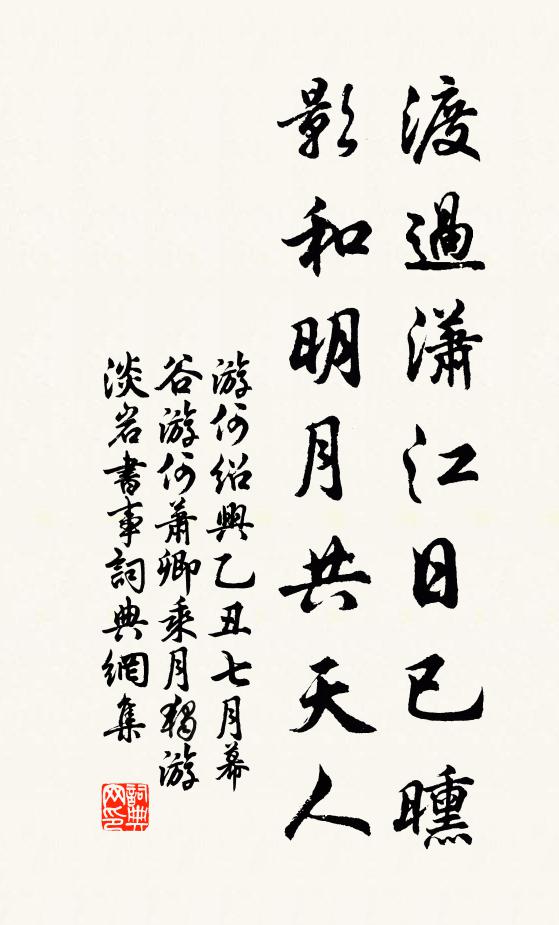 渡過瀟江日已曛
影和明月共天人
游何紹興乙丑七月幕
谷游何蕭卿乘月獨游
淡岩書事詞典網集
詞典网印